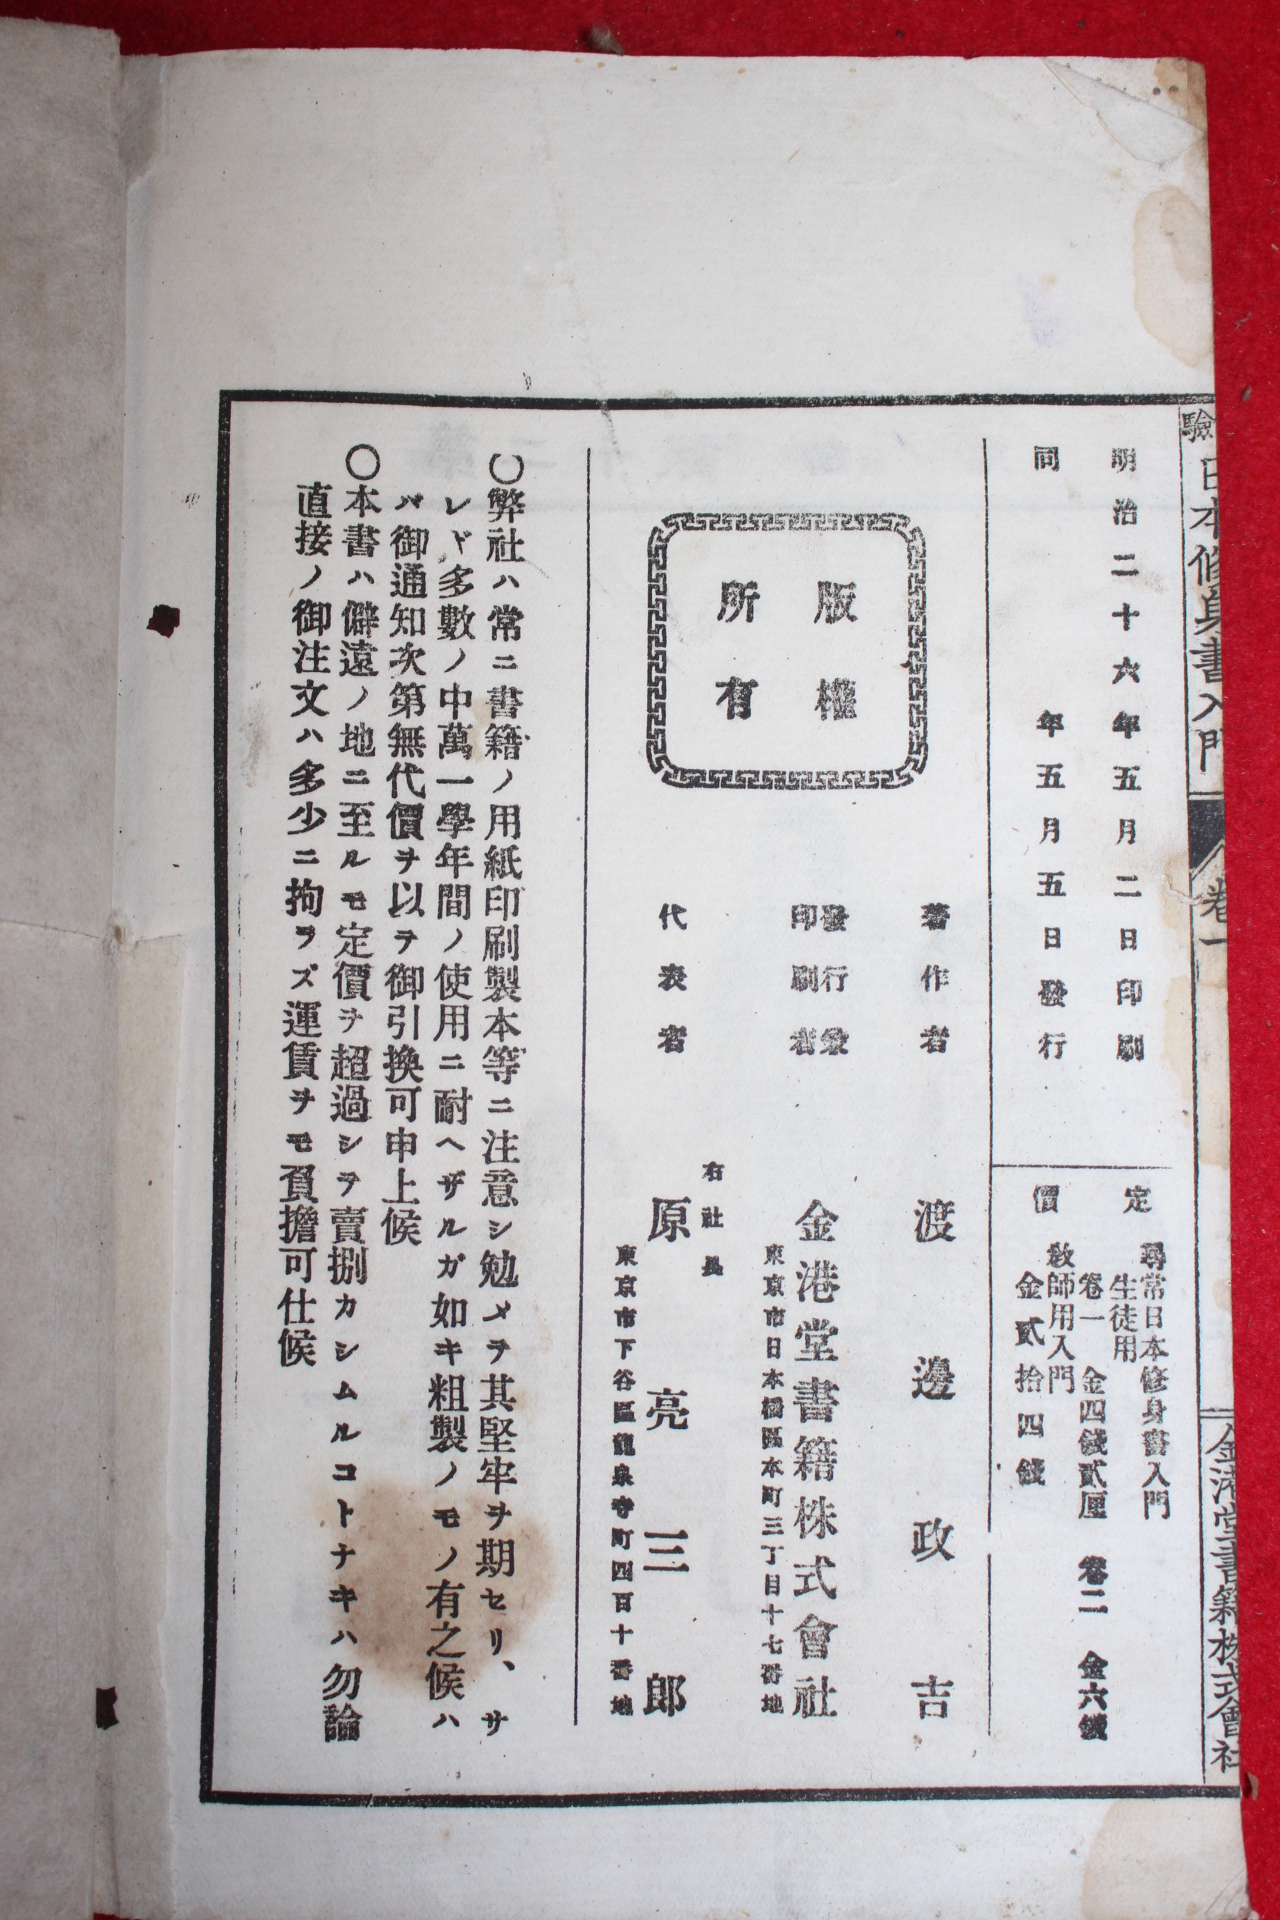 日本修身書入門
卷一
金港堂書籍株式會社
明治二十六年五月二日印刷
同年五月五日發行
定價
尋常日本修身書入門
生徒用
卷一 金四錢貳厘 卷二 金六錢
教師用入門
金貳拾四錢
著作者 渡邊政吉
發行兼
印刷者 金港堂書籍株式會社
東京市日本橋區本町三丁目十七番地
右社長
代表者 原亮三郎
東京市下谷區龍泉寺町四百十番地
版權
所有
〇弊社ハ常ニ書籍ノ用紙印刷製本等ニ注意シ勉メテ其堅牢ヲ期セリ、サ
レド多數ノ中萬一學年間ノ使用ニ耐ヘザルガ如キ粗製ノモノ有之候ハ
バ御通知次第無代價ヲ以テ御引換可申上候
〇本書ハ僻遠ノ地ニ至ルモ定價ヲ超過シテ賣捌カシムルコトナキハ勿論
直接ノ御注文ハ多少ニ拘ラズ運賃ヲモ負擔可仕候